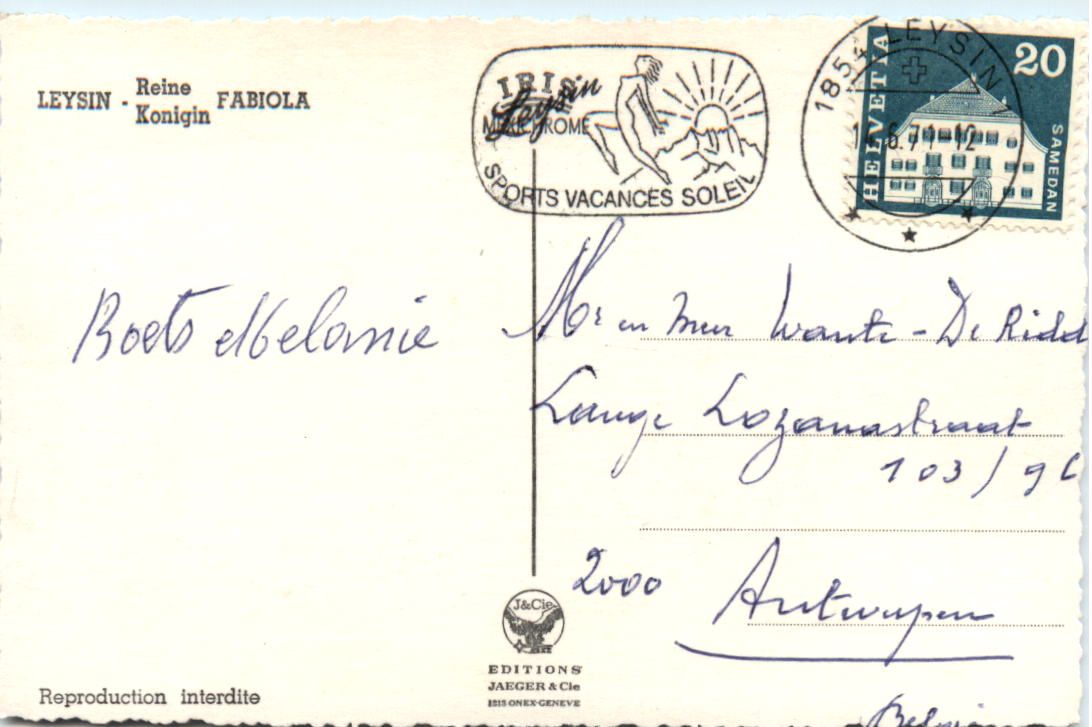 LEYSIN - Reine
Konigin FABIOLA
IRIS
MEXICHROME
Leysin
SPORTS VACANCES SOLEIL
1854 LEYSIN
6.71-12
HELVETIA
20
SAMEDAN
Boets Melanie
Mr en Mevr Wante - De Ridd
Lange Lozanastraat
103/9
2000 Antwerpen
J&Cie
EDITIONS
JAEGER & Cie
1213 ONEX-GENEVE
Reproduction interdite